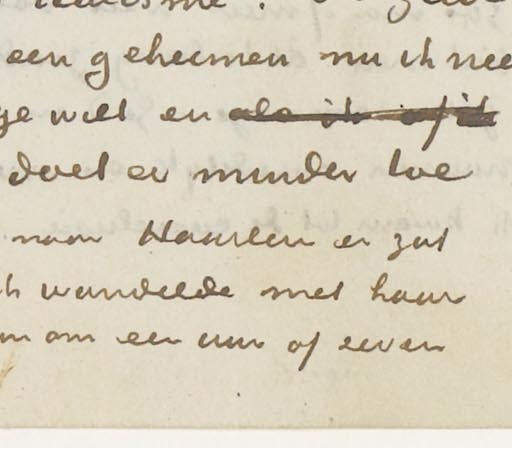 een geheimen nu ik nee
ge wilt en als ik of ik
doet er minder toe
naar Haarlem er zat
ik wandelde met haar
om een uur of zeven